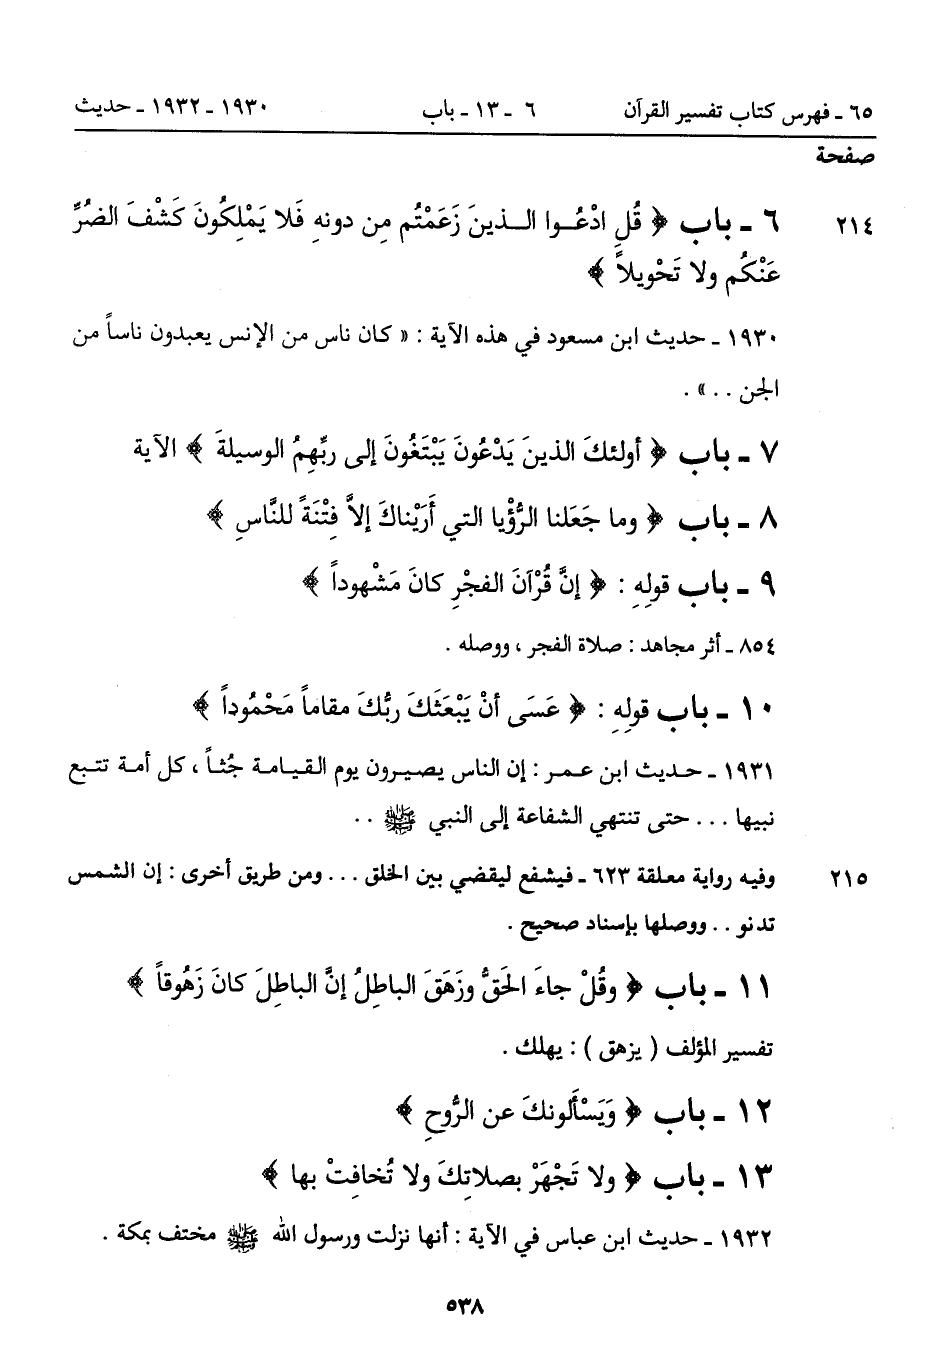 ٦٥ ـ فهرس كتاب تفسير القرآن ٦ ـ ١٣ ـ باب ١٩٣٠ ـ ١٩٣٢ ـ حديث
صفحة
٢١٤ ٦ ـ باب ﴿ قُلِ ادْعُــوا الــذينَ زَعَمْتُم مِن دونهِ فَلا يَمْلِكُونَ كَشْفَ الضُرِّ
عَنْكُم ولا تَحْويلاً ﴾
١٩٣٠ ـ حديث ابن مسعود في هذه الآية : « كان ناس من الإنس يعبدون ناساً من
الجن . . » .
٧ ـ باب ﴿ أولئكَ الذينَ يَدْعُونَ يَبْتَغُونَ إلى ربِّهِمُ الوسيلةَ ﴾ الآية
٨ ـ باب ﴿ وما جَعَلنا الرُّؤْيا التي أَرَيْناكَ إلاَّ فِتْنَةً للنَّاسِ ﴾
٩ ـ باب قولِهِ : ﴿ إنَّ قُرْآنَ الفجْرِ كانَ مَشْهوداً ﴾
٨٥٤ ـ أثر مجاهد : صلاة الفجر ، ووصله .
١٠ ـ باب قولِهِ : ﴿ عَسَى أنْ يَبْعَثَكَ ربُّكَ مقاماً مَحْمُوداً ﴾
١٩٣١ ـ حـديث ابن عـمر : إن الناس يصيرون يوم القيـامـة جُثـاً ، كل أمـة تتـبع
نبيها . . . حتى تنتهي الشفاعة إلى النبي ﷺ . .
٢١٥ وفيه رواية معلقة ٦٢٣ ـ فيشفع ليقضي بين الخلق . . . ومن طريق أخرى : إن الشمس
تدنو . . ووصلها بإسناد صحيح .
١١ ـ باب ﴿ وقُلْ جاءَ الحَقُّ وزَهَقَ الباطِلُ إنَّ الباطِلَ كانَ زَهُوقاً ﴾
تفسير المؤلف ( يزهق ) : يهلك .
١٢ ـ باب ﴿ وَيَسْأَلونكَ عن الرُّوحِ ﴾
١٣ ـ باب ﴿ ولا تَجْهَرْ بصلاتِكَ ولا تُخافِتْ بها ﴾
١٩٣٢ ـ حديث ابن عباس في الآية : أنها نزلت ورسول الله ﷺ مختف بمكة .
٥٣٨